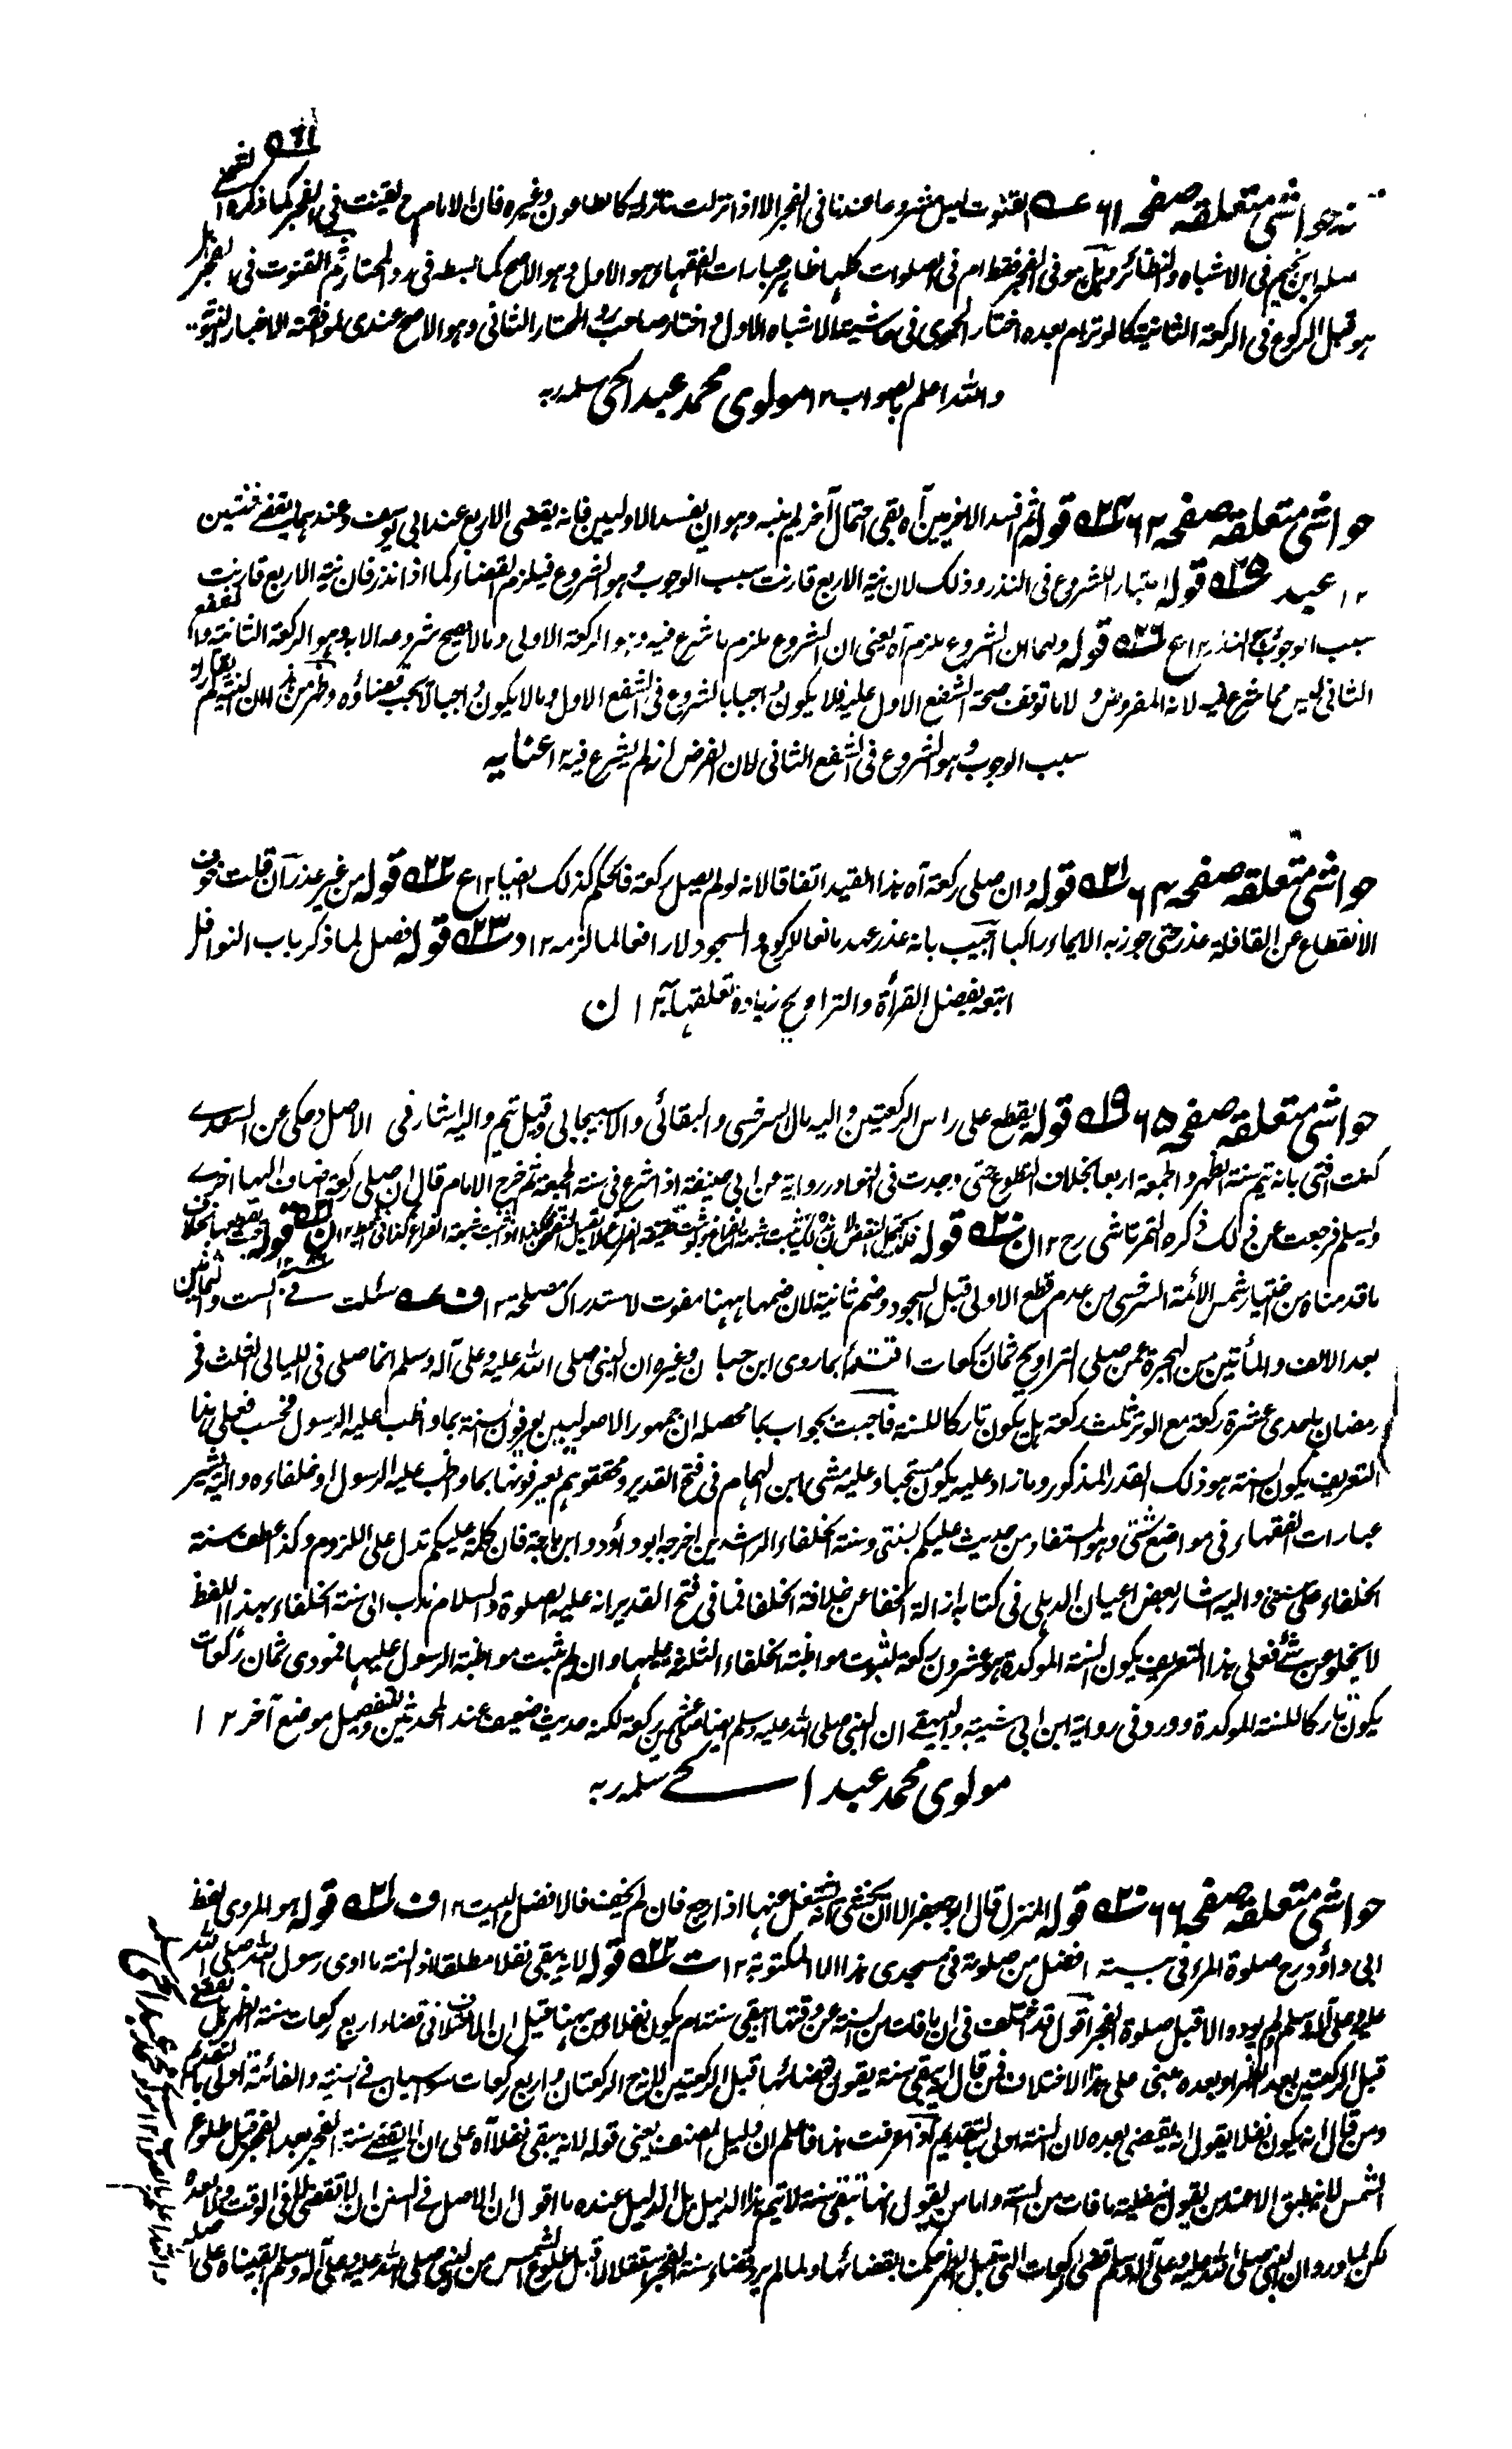 ٥٦١
حواشی متعلقہ صفحہ ٦١ القنوت ليس مشروعا عندنا فی الفجر الا اذا نزلت نازلة كالطاعون وغيره فان الامام ح يقنت فی الفجر كما ذكره
ابن نجيم فی الاشباه والنظائر وهل هو فی الفجر فقط ام فی الصلوات كلها ظاهر عبارات الفقهاء هو الاول وهو الاصح كما بسطه فی رد المحتار ثم القنوت فی الفجر هل
هو قبل الركوع فی الركعة الثانية كالوتر ام بعده اختار الحموی فی حاشية الاشباه الاول واختار صاحب رد المحتار الثانی وهو الاصح عندی لموافقته الاخبار
والله اعلم بالصواب ١٢ مولوی محمد عبد الحی سلمه ربه
حواشی متعلقہ صفحہ ٦٢ قوله ثم افسد الاخريين آه بقی احتمال آخر لم ينبه وهو ان يفسد الاوليين فانه يقضی الاربع عند ابی يوسف وعندهما يقضی ثنتين
١٢ عبد قوله اعتبار للشروع فی النذر وذلك لان نية الاربع قارنت سبب الوجوب وهو الشروع فيلزم القضاء كما اذا نذر فان نية الاربع قارنت
سبب الوجوب النذر ١٢ ع قوله ولهما ان الشروع ملزم آه يعنی ان الشروع ملزم ما شرع فيه وهو الركعة الاولی وما لا صح شروعه الا به وهو الركعة الثانية والشفع
الثانی ليس مما شرع فيه لانه المفروض ولا ما توقف صحة الشفع الاول عليه فلا يكون واجبا بالشروع فی الشفع الاول وما لا يكون واجبا لا يجب قضاؤه
سبب الوجوب وهو الشروع فی الشفع الثانی لان الفرض انه لم يشرع فيه ١٢ عنایه
حواشی متعلقہ صفحہ ٦٤ قوله وان صلی ركعة آه هذا القيد اتفاقا لانه لو لم يصل ركعة فالحكم كذلك ايضا ١٢ ع قوله من غير عذر آن قلت خوف
الانقطاع عن القافلة عذر حتی جوز به الايماء راكبا اجيب بانه عذر عهد مانعا للركوع والسجود لا رافعا لما لزمه ١٢ قوله فصل لما ذكر باب النوافل
اتبعه بفصل القرأة والتراويح زيادة تعلقها به ١٢ ن
حواشی متعلقہ صفحہ ٦٥ قوله يقطع علی راس الركعتين واليه مال السرخسی والبقائی والاسبيجابی وقيل يتم واليه اشار فی الاصل وحكی عن السعدی
كنت افتی بانه يتم سنة الظهر والجمعة اربعا بخلاف التطوع حتی وجدت فی النوادر رواية عن ابی حنيفة اذا شرع فی سنة الجمعة ثم خرج الامام قال ان صلی ركعة اضاف اليها اخری
وسلم فرجعت عن ذلك ذكره التمرتاشی رح ١٢ ن قوله
ما قدمناه من اختيار شمس الائمة السرخسی من عدم قطع الاولی قبل السجود وضم ثانية لان ضمها ههنا مفوت لاستدراك مصلحة ١٢ ف سئلت فی الست والثمانين
بعد الالف والمأتين من الهجرة عمن صلی التراويح ثمان ركعات اقتداء بما روی ابن حبان وغيره ان النبی صلی الله عليه وعلی آله وسلم انما صلی فی الليالی الثلث فی
رمضان باحدی عشرة ركعة مع الوتر ثلث ركعة هل يكون تاركا للسنة فاجبت بجواب بما محصله ان جمهور الاصوليين يعرفون السنة بما واظب عليه الرسول فحسب فعلی هذا
التعريف يكون السنة هو ذلك القدر المذكور وما زاد عليه يكون مستحبا وعليه مشی ابن الهمام فی فتح القدير ومحققوهم يعرفونها بما واظب عليه الرسول او خلفاءه واليه يشير
عبارات الفقهاء فی مواضع شتی وهو المستفاد من حديث عليكم بسنتی وسنة الخلفاء الراشدين اخرجه ابوداؤد وابن ماجة فان كلمة عليكم تدل علی اللزوم وكذا عطف سنة
الخلفاء علی سنتی واليه اشار بعض اعيان الدهلی فی كتابه ازالة الخفا عن خلافة الخلفا فما فی فتح القدير انه عليه الصلوة والسلام ندب الی سنة الخلفاء بهذا اللفظ
لا يخلو عن شئ فعلی هذا التعريف يكون السنة الموكدة هو عشرون ركعة لثبوت مواظبة الخلفاء الثلثة عليها وان لم تثبت مواظبة الرسول عليها فمودی ثمان ركعات
يكون تاركا للسنة الموكدة وورد فی رواية ابن ابی شيبة والبيهقی ان النبی صلی الله عليه وسلم ايضا صلی عشرين ركعة لكنه حديث ضعيف عند المحدثين وللتفصيل موضع آخر ١٢
مولوی محمد عبد الحی سلمه ربه
حواشی متعلقہ صفحہ ٦٦ قوله المنزل قال ابو جعفر الا ان يخشی انه يشتغل عنها اذا رجع فان لم يخف فالافضل البيت ١٢ ف قوله هو المروی لفظ
ابی داؤد رح صلوة المرء فی بيته افضل من صلوته فی مسجدی هذا الا المكتوبة ١٢ ت قوله لانه يبقی نفلا مطلقا اذ السنة ما ادی رسول الله صلی الله
عليه وعلی آله وسلم لم يؤد والا قبل صلوة الفجر اقول قد اختلف فی ان ما فات من السنة عن وقتها ايبقی سنة ام يكون نفلا ومن ههنا قيل ان الاختلاف فی قضاء اربع ركعات سنة الظهر بل يقضی
قبل الركعتين بعد الظهر او بعده مبنی علی هذا الاختلاف فمن قال انه يبقی سنة يقول بقضائها قبل الركعتين اذ الركعتان واربع ركعات سيان فی السنية والفائتة اولی بالتقديم
ومن قال انه يكون نفلا يقول انه يقضی بعده لان السنة اولی بالتقديم اذا عرفت هذا فاعلم ان دليل المصنف يعنی قوله لانه يبقی نفلا آه علی ان لا يقضی سنة الفجر بعد الفجر قبل طلوع
الشمس لا ينطبق الا عند من يقول بنفلية ما فات من السنة واما من يقول انها تبقی سنة لا يتم هذا الدليل بل الدليل عنده ما اقول ان الاصل فی السنن ان لا تقضی لا فی الوقت ولا بعده
لكن لما ورد ان النبی صلی الله عليه وعلی آله وسلم قضی الركعات التی قبل الظهر حكمنا بقضائها ولما لم يرد قضاء سنة الفجر مستقلا لا قبل طلوع الشمس من النبی صلی الله عليه وعلی آله وسلم ابقيناه علی اصله